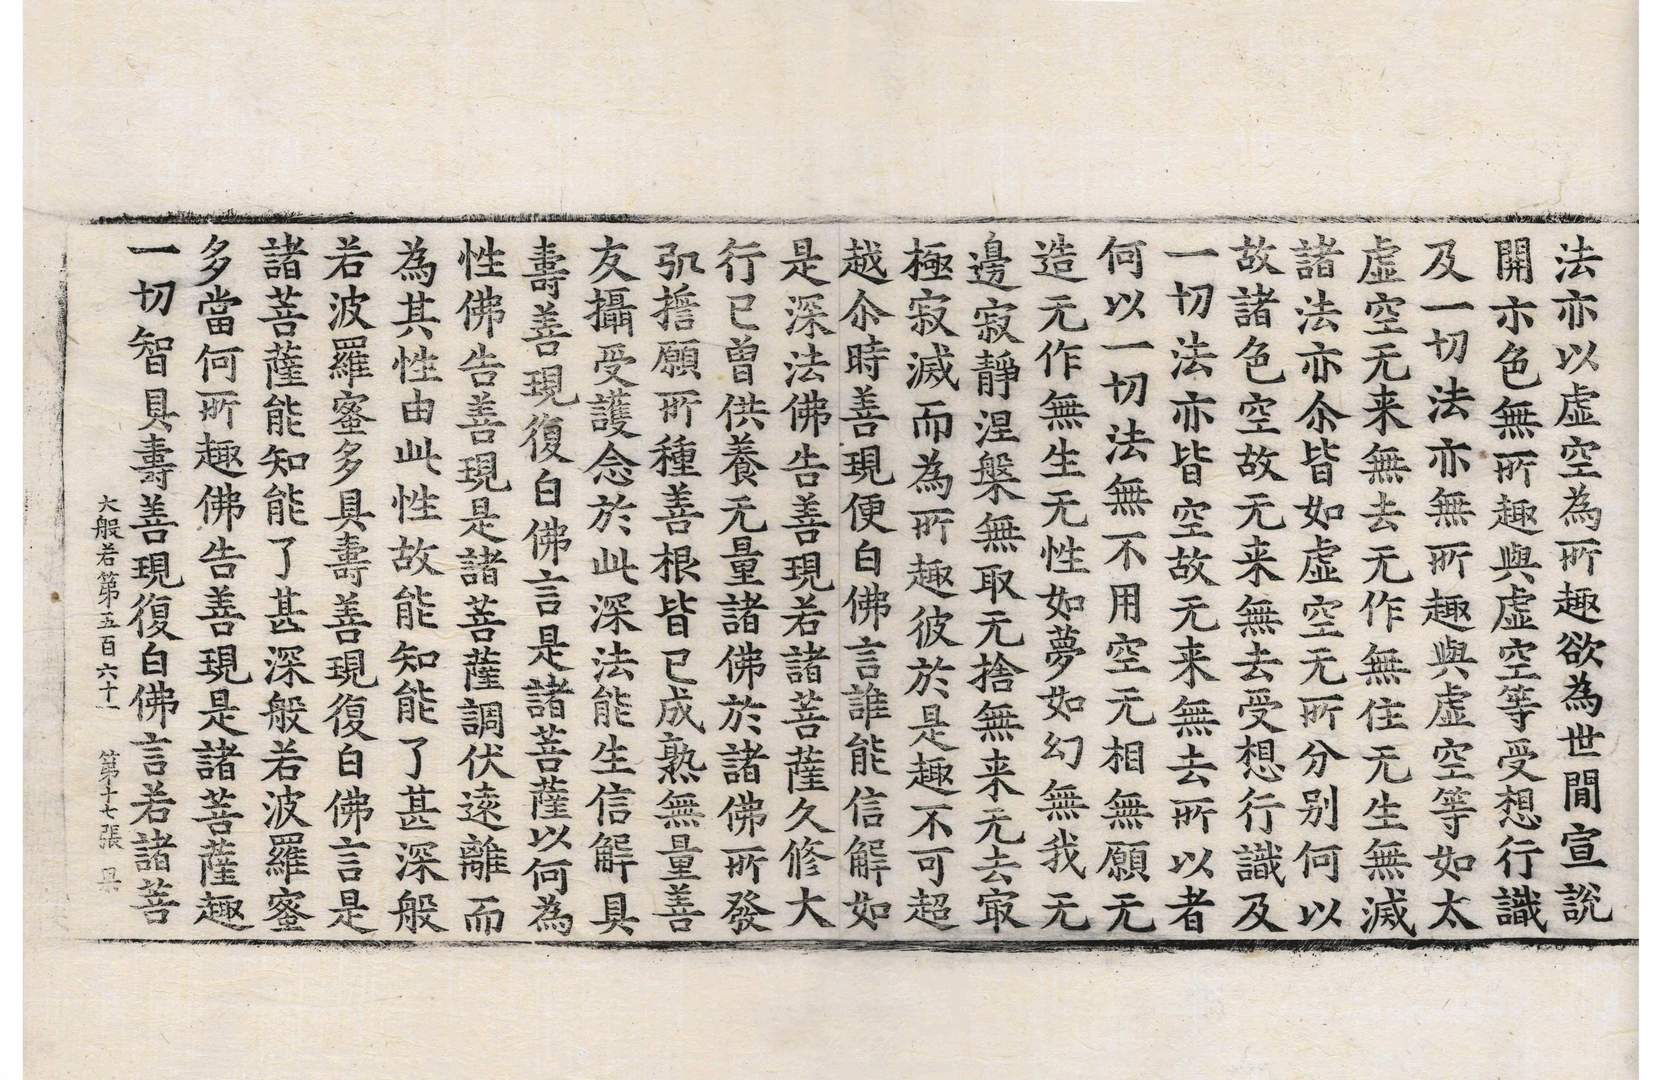 法亦以虛空為所趣欲為世間宣說
開示色無所趣與虛空等受想行識
及一切法亦無所趣與虛空等如太
虛空无来無去无作無住无生無滅
諸法亦尒皆如虛空无所分別何以
故諸色空故无来無去受想行識及
一切法亦皆空故无来無去所以者
何以一切法無不用空无相無願无
造无作無生无性如夢如幻無我无
邊寂靜涅槃無取无捨無来无去㝡
極寂滅而為所趣彼於是趣不可超
越尒時善現便白佛言誰能信解如
是深法佛告善現若諸菩薩久修大
行已曾供養无量諸佛於諸佛所發
弘誓願所種善根皆已成熟無量善
友攝受護念於此深法能生信解具
壽善現復白佛言是諸菩薩以何為
性佛告善現是諸菩薩調伏遠離而
為其性由此性故能知能了甚深般
若波羅蜜多具壽善現復白佛言是
諸菩薩能知能了甚深般若波羅蜜
多當何所趣佛告善現是諸菩薩趣
一切智具壽善現復白佛言若諸菩
大般若第五百六十一 第十七張 杲